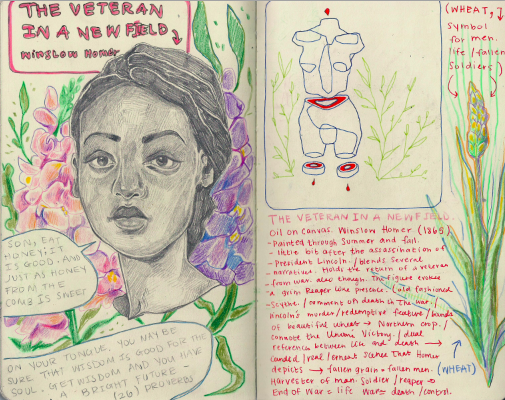 THE VETERAN
IN A NEW FIELD
WINSLOW HOMER
SON, EAT
HONEY! IT
IS GOOD. AND
JUST AS HONEY
FROM THE
COMB IS SWEET
ON YOUR TONGUE, YOU MAY BE
SURE THAT WISDOM IS GOOD FOR THE
SOUL. GET WISDOM AND YOU HAVE
A BRIGHT FUTURE -
(26) PROVERBS
(WHEAT,
Symbol
for men.
life / fallen
Soldiers)
THE VETERAN IN A NEW FIELD.
Oil on Canvas. Winslow Homer. (1865)
- Painted through Summer and fall.
- little bit after the assassination of
- President Lincoln. / blends Several
- narratives. Holds the return of a veteran
from war. also though. The figure evokes
a grim Reaper like presence. Old fashioned
- Scythe. / comment on death in the war. /
Lincoln's murder / redemptive feature / lands
of beautiful wheat → Northern crop. /
Connote the Union's Victory. / dual
reference between life and death →
Candid / real / earnest Scenes That Homer
depicts → fallen grain = fallen men. (WHEAT)
Harvester of man. Soldier / reaper →
End of War = life War = death / control.